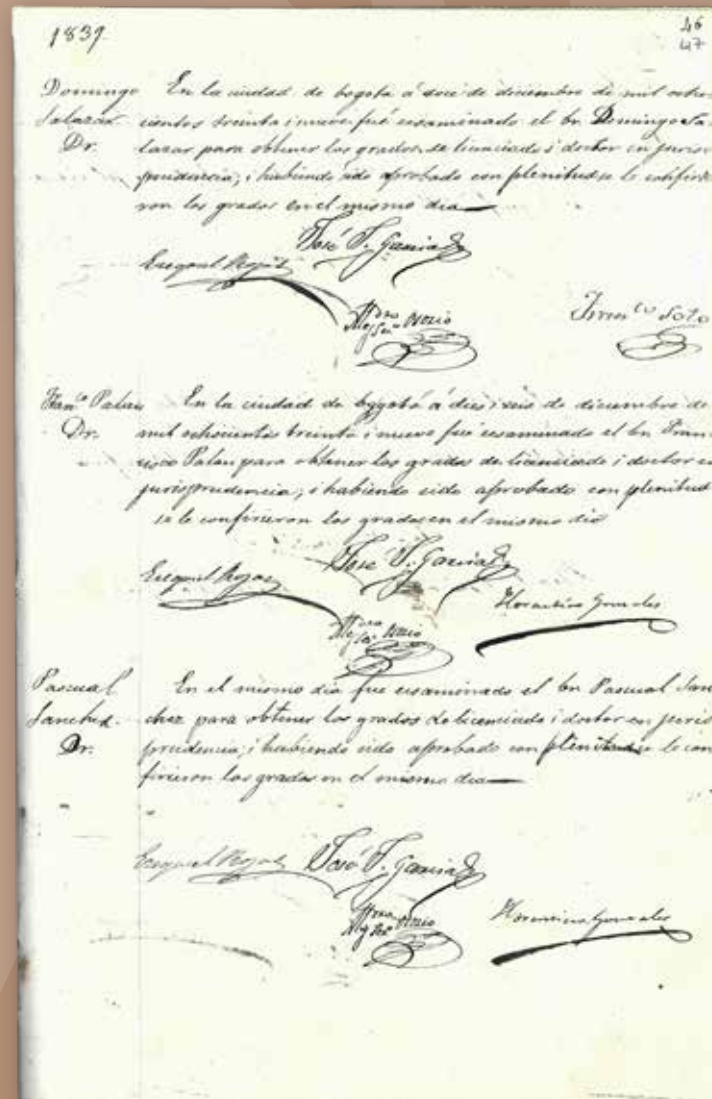 1839.
46
47
Domingo
Salazar
Dr.
En la ciudad de bogotá á doce de diciembre de mil ocho
cientos treinta i nueve fué ecsaminado el br. Domingo Sa
lazar para obtener los grados de licenciado i doctor en juris
prudencia; i habiendo sido aprobado con plenitud se le confirie
ron los grados en el mismo dia
José F. Garcia
Ezequiel Rojas
Osorio
Franco Soto
Franco Palau
Dr.
En la ciudad de bogotá á dies i seis de diciembre de
mil ochocientos treinta i nueve fué ecsaminado el br. Fran
cisco Palau para obtener los grados de licenciado i doctor en
jurisprudencia; i habiendo sido aprobado con plenitud
se le confirieron los grados en el mismo dia
José F. Garcia
Ezequiel Rojas
Osorio
Florentino Gonzales
Pascual
Sanchez.
Dr.
En el mismo dia fue ecsaminado el br Pascual San
chez para obtener los grados de licenciado i doctor en juris
prudencia; i habiendo sido aprobado con plenitud se le con
firieron los grados en el mismo dia
Ezequiel Rojas
José F. Garcia
Osorio
Florentino Gonzales